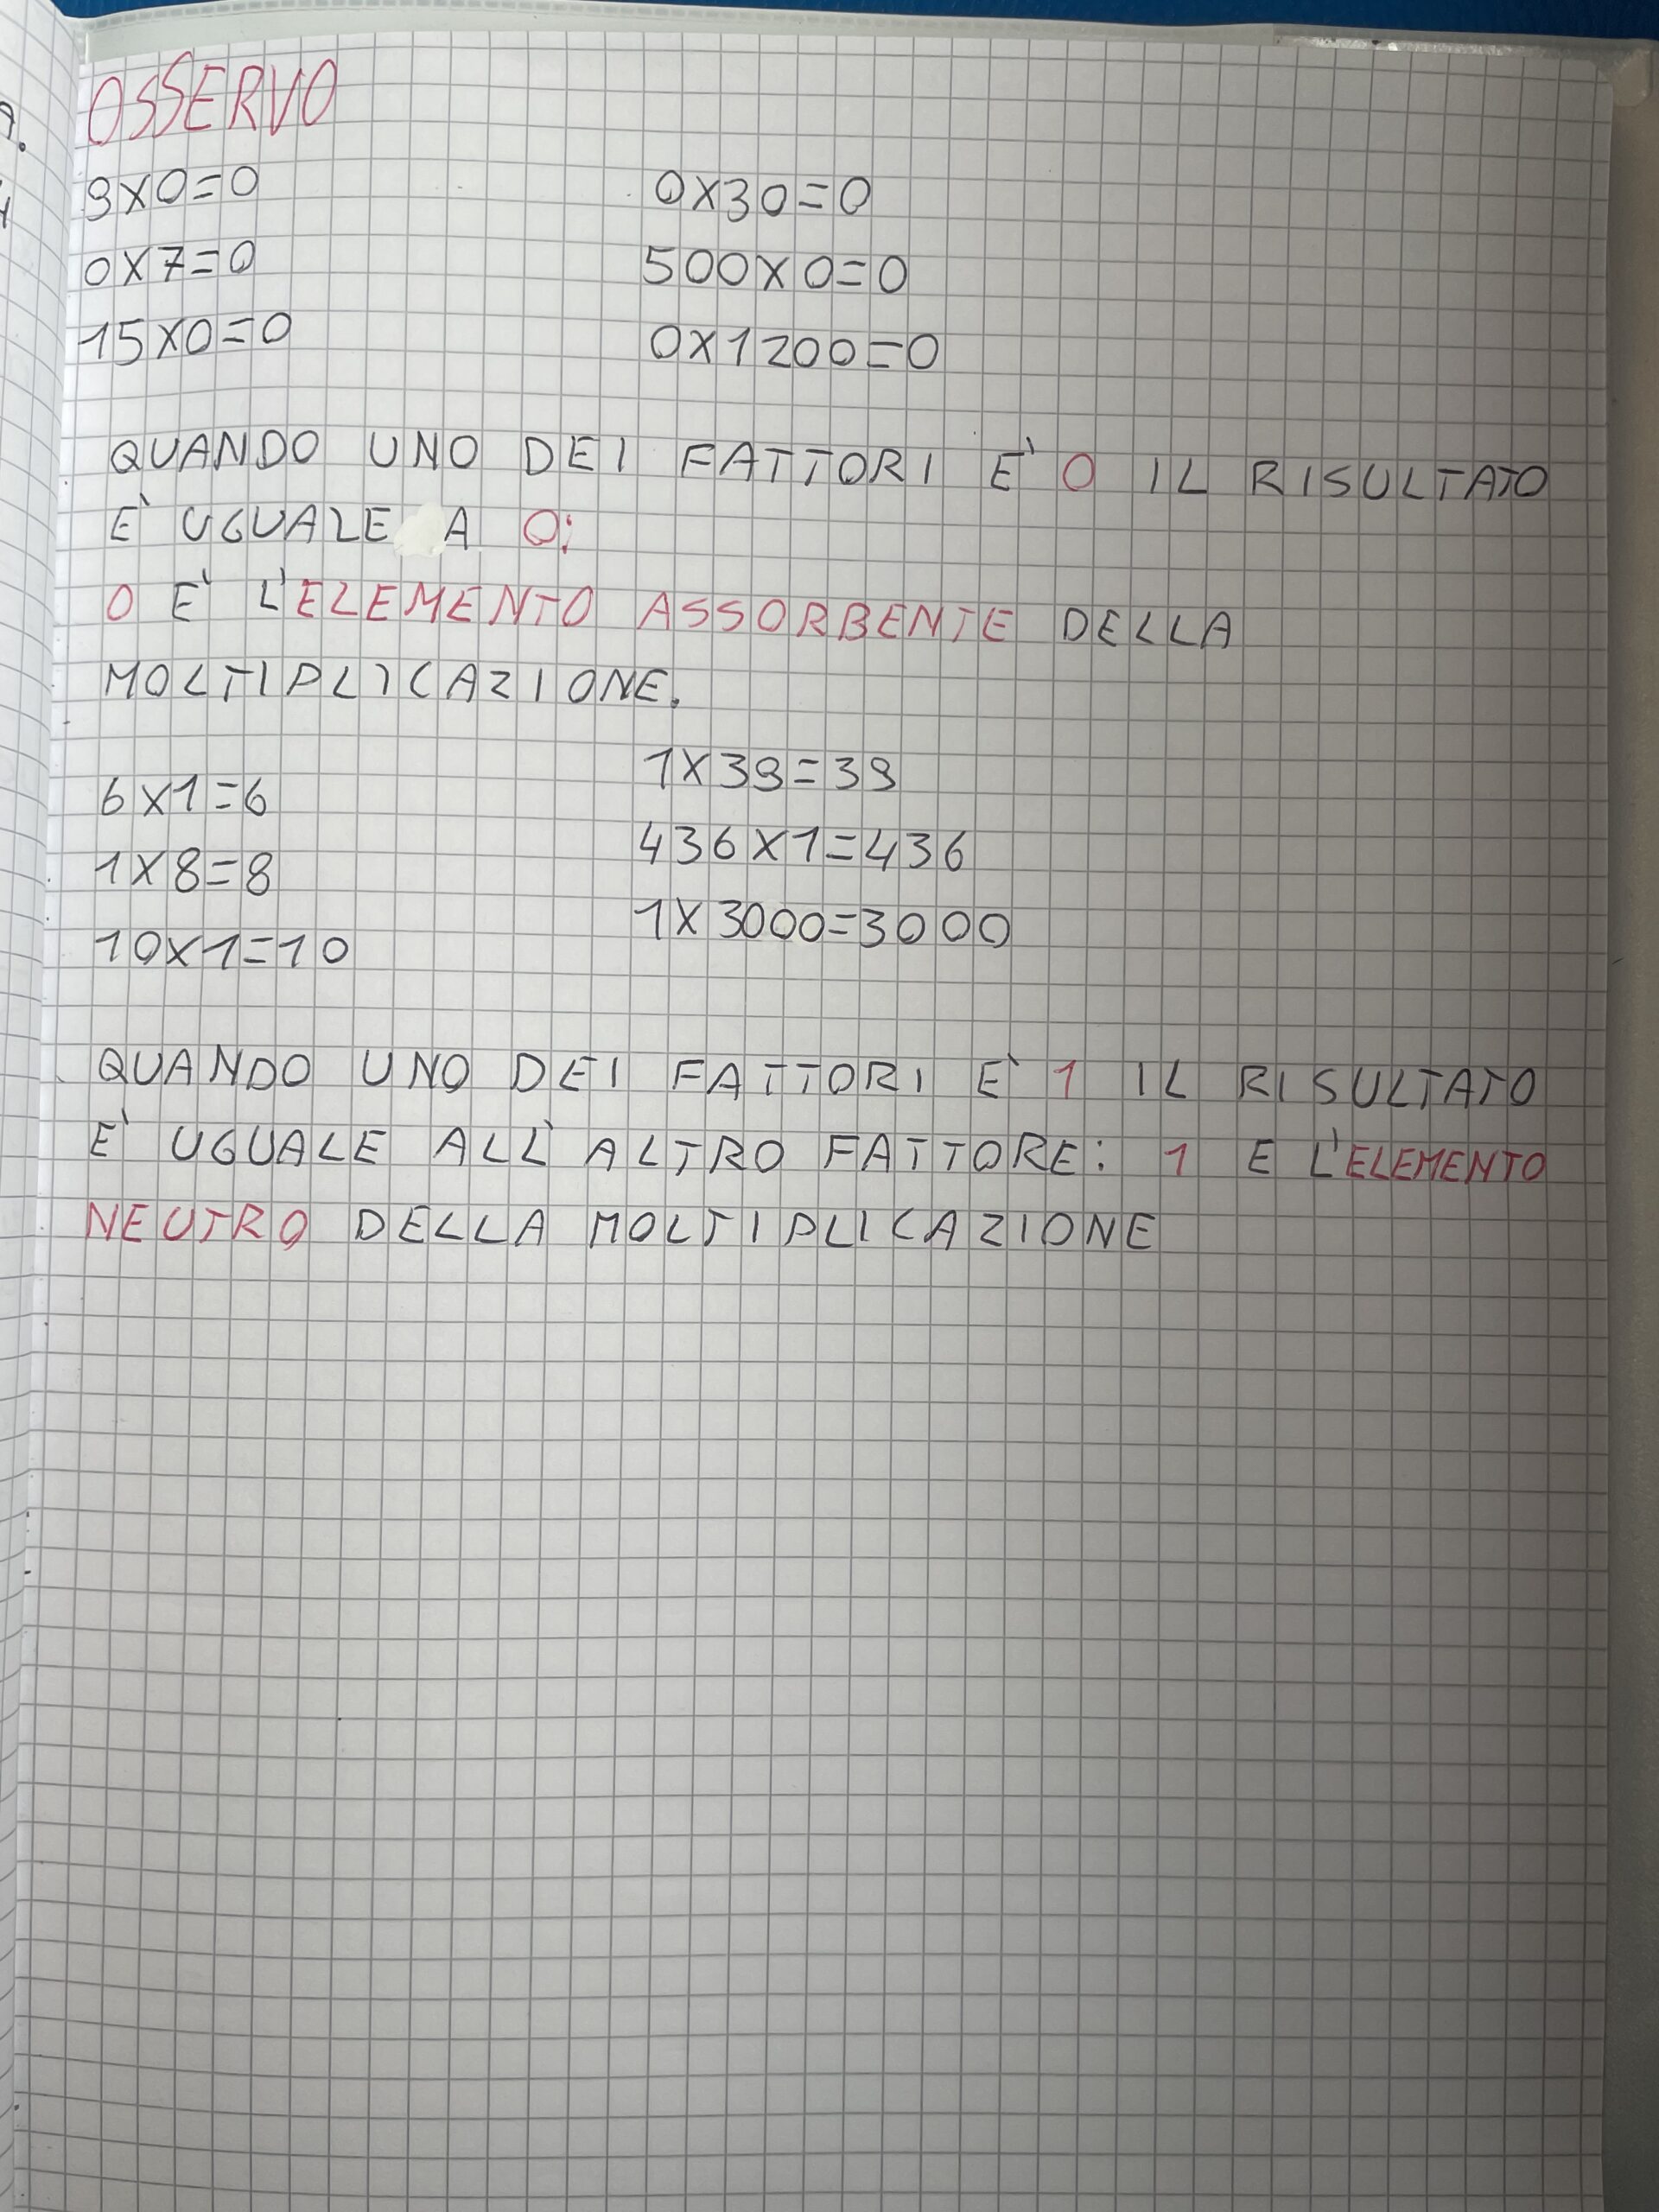 OSSERVO
9X0=0
0X7=0
15X0=0
0X30=0
500X0=0
0X1200=0
QUANDO UNO DEI FATTORI E' 0 IL RISULTATO
E' UGUALE A 0:
0 E' L'ELEMENTO ASSORBENTE DELLA
MOLTIPLICAZIONE.
6X1=6
1X8=8
10X1=10
1X39=39
436X1=436
1X3000=3000
QUANDO UNO DEI FATTORI E' 1 IL RISULTATO
E' UGUALE ALL'ALTRO FATTORE: 1 E L'ELEMENTO
NEUTRO DELLA MOLTIPLICAZIONE